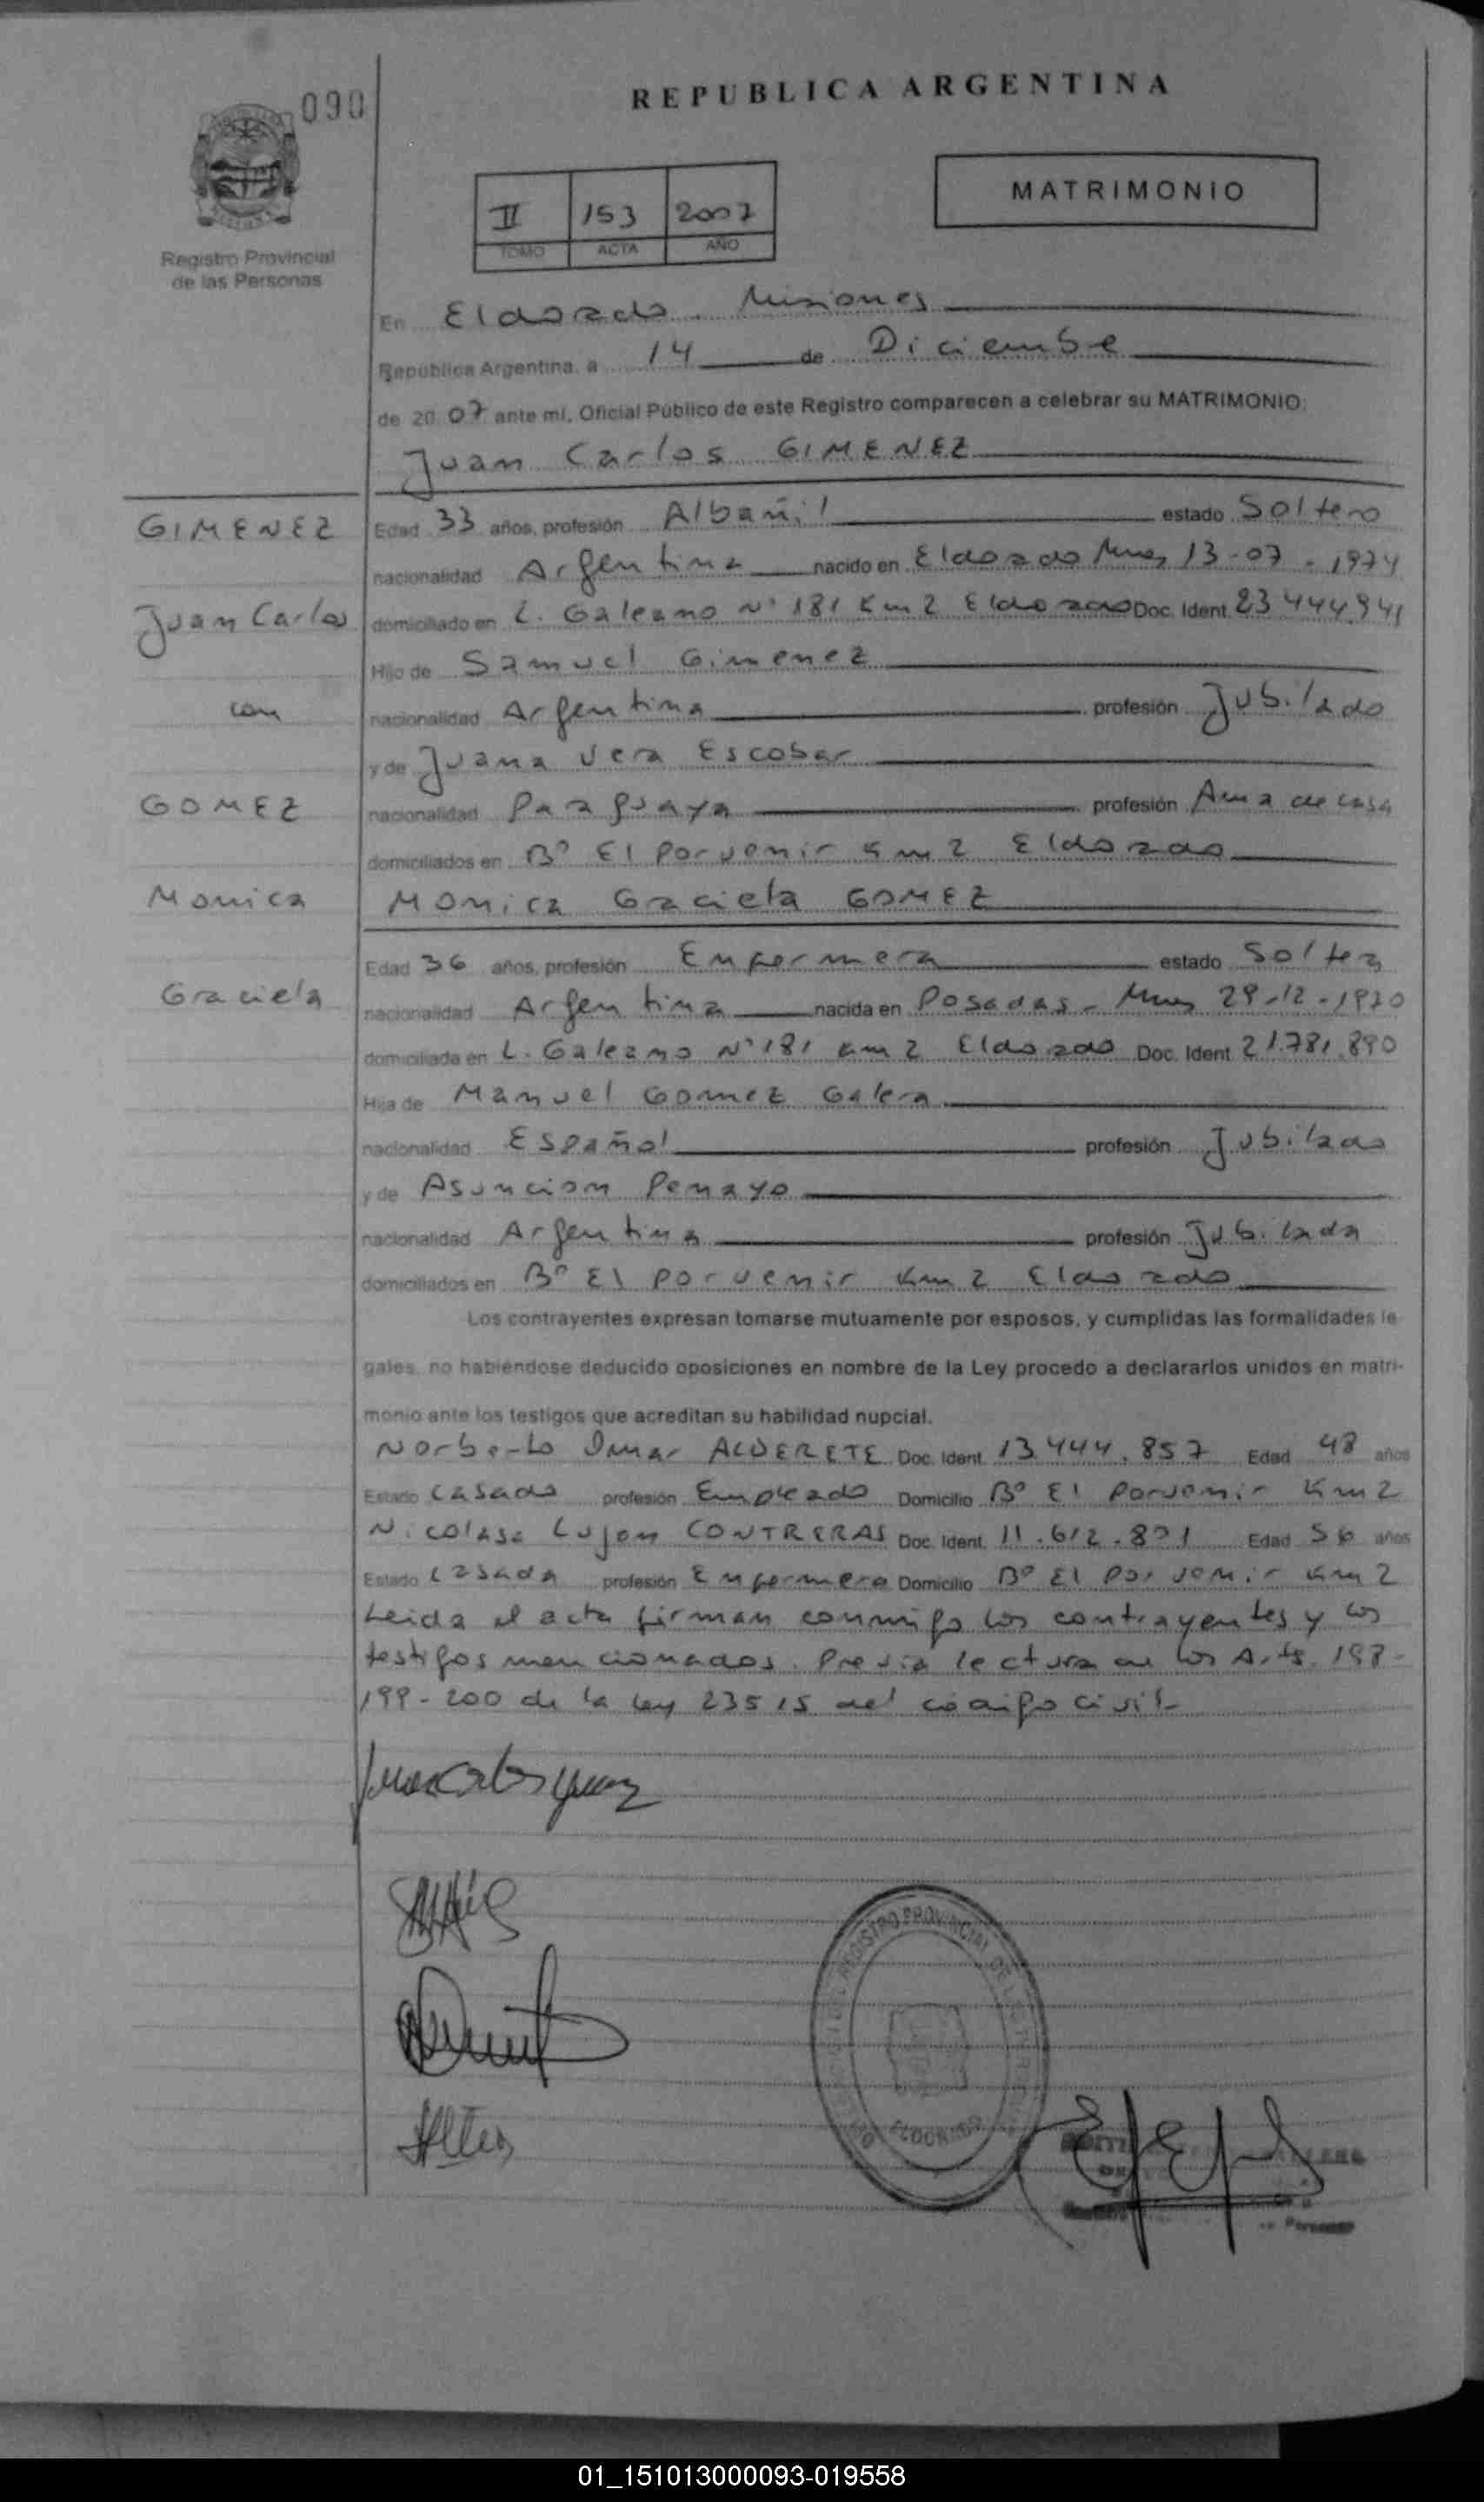 090
REPUBLICA ARGENTINA
MATRIMONIO
II 153 2007
TOMO ACTA AÑO
Registro Provincial
de las Personas
En Eldorado. Misiones
República Argentina, a 14 de Diciembre
de 20 07 ante mi, Oficial Público de este Registro comparecen a celebrar su MATRIMONIO:
Juan Carlos GIMENEZ
GIMENEZ
Juan Carlos
con
GOMEZ
Monica
Graciela
Edad 33 años, profesión Albañil estado Soltero
nacionalidad Argentina nacido en Eldorado Mnes 13-07-1974
domiciliado en L. Galeano N° 181 Km 2 Eldorado Doc. Ident. 23.444.941
Hijo de Samuel Gimenez
nacionalidad Argentina profesión Jubilado
y de Juana Vera Escobar
nacionalidad Paraguaya profesión Ama de casa
domiciliados en B° El Porvenir Km 2 Eldorado
Monica Graciela GOMEZ
Edad 36 años, profesión Enfermera estado Soltera
nacionalidad Argentina nacida en Posadas - Mnes 29-12-1970
domiciliada en L. Galeano N° 181 Km 2 Eldorado Doc. Ident. 21.781.890
Hija de Manuel Gomez Galera
nacionalidad Español profesión Jubilado
y de Asuncion Penayo
nacionalidad Argentina profesión Jubilada
domiciliados en B° El Porvenir Km 2 Eldorado
Los contrayentes expresan tomarse mutuamente por esposos, y cumplidas las formalidades le-
gales, no habiéndose deducido oposiciones en nombre de la Ley procedo a declararlos unidos en matri-
monio ante los testigos que acreditan su habilidad nupcial.
Norberto Omar ALDERETE Doc. Ident. 13.444.857 Edad 48 años
Estado Casado profesión Empleado Domicilio B° El Porvenir Km 2
Nicolasa Lujan CONTRERAS Doc. Ident. 11.612.891 Edad 56 años
Estado Casada profesión Enfermera Domicilio B° El Porvenir Km 2
Leida el acta firman conmigo los contrayentes y los
testigos mencionados. Previa lectura de los Arts. 198-
199-200 de la Ley 23515 del código civil-
REGISTRO PROVINCIAL DE LAS PERSONAS
ELDORADO
01_151013000093-019558